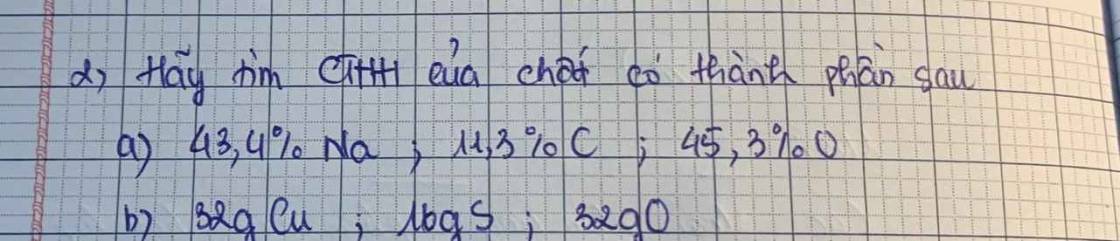 2, Hãy tìm CTHH của chất có thành phần sau
a) 43,4% Na ; 11,3% C ; 45,3% O
b) 32g Cu ; 16g S ; 32g O